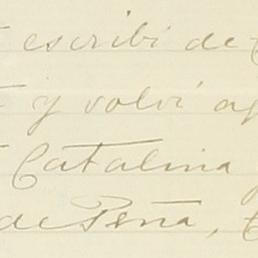 escribí de
y volví
Catalina
de Peña,